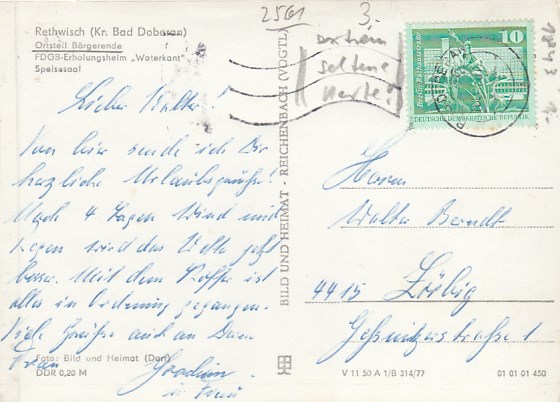 Rethwisch (Kr. Bad Doberan)
Ortsteil Börgerende
FDGB-Erholungsheim „Waterkant"
Speisesaal
2561
3.
extrem
seltene
Karte!
10
DEUTSCHE DEMOKRATISCHE REPUBLIK
Lieber Walter!
Von hier sende ich Dir
herzliche Urlaubsgrüße!
Nach 4 Tagen Wind und
Regen wird das Wetter jetzt
besser. Mit dem Koffer ist
alles in Ordnung gegangen.
Viele Grüße auch an Deine
Frau
Joachim
u. Frau
BILD UND HEIMAT · REICHENBACH (VOGTL)
Herrn
Walter Berndt
4415 Zörbig
Geßnitzerstraße 1
Foto: Bild und Heimat (Darr)
DDR 0,20 M
V 11 50 A 1/B 314/77
01 01 01 450